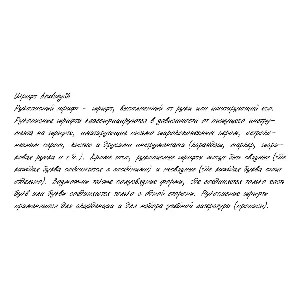 Шрифт Anabioz
Рукописный шрифт – шрифт, выполненный от руки или имитирующий его.
Рукописные шрифты классифицируются в зависимости от пишущего инстру-
мента на шрифты, имитирующие письмо ширококонечным пером, остроко-
нечным пером, кистью и другими инструментами (карандаш, маркер, шари-
ковая ручка и т.п.). Кроме того, рукописные шрифты могут быть связными (где
каждая буква соединяется с соседними) и несвязными (где каждая буква стоит
отдельно). Возможны также полусвязные формы, где соединяются только часть
букв или буквы соединяются только с одной стороны. Рукописные шрифты
применяются для акциденции и для набора учебной литературы (прописи).